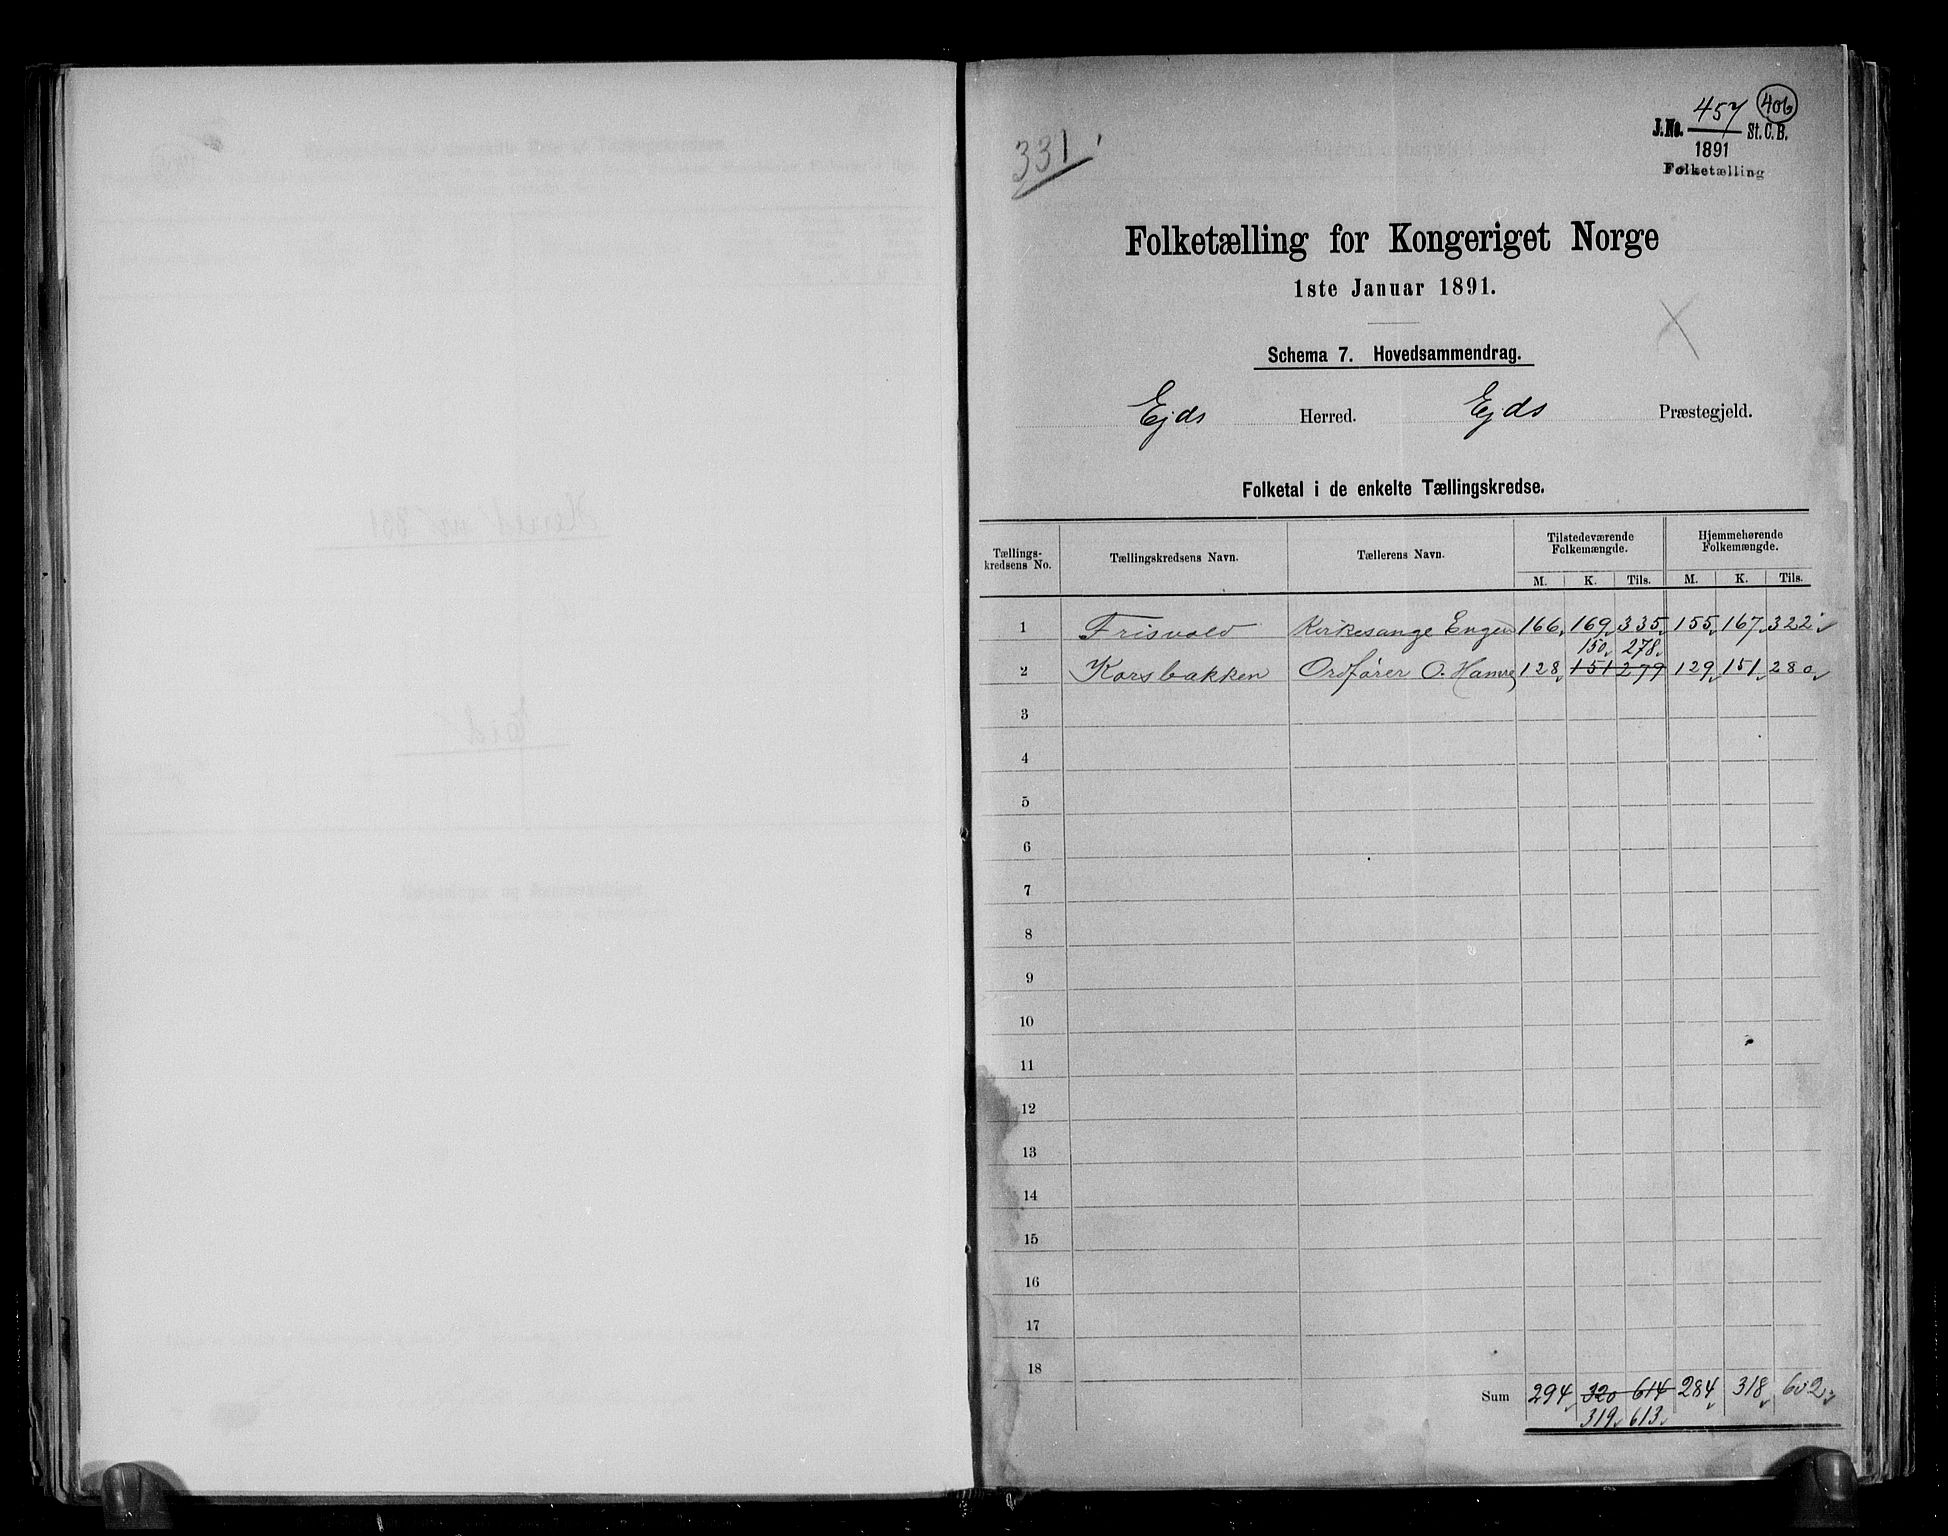 331
457
406
J.No. St. C. B.
1891
Folketælling
Folketælling for Kongeriget Norge
1ste Januar 1891.
Schema 7. Hovedsammendrag.
Ejds Herred. Ejds Præstegjeld.
Folketal i de enkelte Tællingskredse.
Tællings-kredsens No. Tællingskredsens Navn. Tællerens Navn. Tilstedeværende Folkemængde. Hjemmehørende Folkemængde.
M. K. Tils. M. K. Tils.
1 Frisvold Kirkesanger Engen 166 169 335 155 167 322
150 278
2 Korsbakken Ordfører O. Hamre 128 151 279 129 151 280
3
4
5
6
7
8
9
10
11
12
13
14
15
16
17
18
Sum 294 320 614 284 318 602
319 613